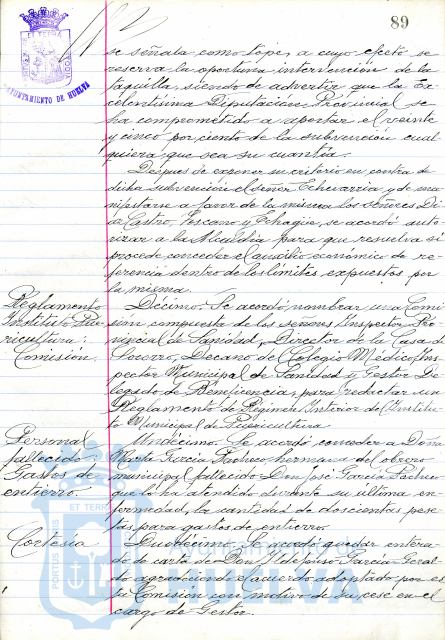 89
AYUNTAMIENTO DE HUELVA
se señala como tope, a cuyo efecto se
reserva la oportuna intervención de la
taquilla, siendo de advertir que la Ex-
celentísima Diputación Provincial se
ha comprometido a aportar el veinte
y cinco por ciento de la subvención cual-
quiera que sea su cuantía.
Después de exponer su criterio en contra de
dicha subvención el señor Echevarria y de ma-
nifestarse a favor de la misma los señores Díaz
Castro, Toscano y Echagüe, se acordó auto-
rizar a la Alcaldía para que resuelva si
procede conceder el auxilio económico de re-
ferencia dentro de los límites expuestos por
la misma.
Reglamento
Instituto Pue-
ricultura:
Comisión.
Décimo. Se acordó nombrar una Comi-
sión compuesta de los señores Inspector Pro-
vincial de Sanidad, Director de la Casa de
Socorro, Decano del Colegio Médico, Ins-
pector Municipal de Sanidad y Gestor De-
legado de Beneficencia, para redactar un
Reglamento de Régimen Interior del Institu-
to Municipal de Puericultura.
Personal
fallecido:
Gastos de
entierro.
Undécimo. Se acordó conceder a Doña
Marta García Pacheco hermana del obrero
municipal fallecido Don José García Pacheco
que lo ha atendido durante su última en-
fermedad, la cantidad de doscientas pese-
tas para gastos de entierro.
Cortesía
Duodécimo. Se acordó quedar entera-
do de carta de Don Ildefonso García Geral-
do agradeciendo el acuerdo adoptado por es-
ta Comisión con motivo de su cese en el
cargo de Gestor.